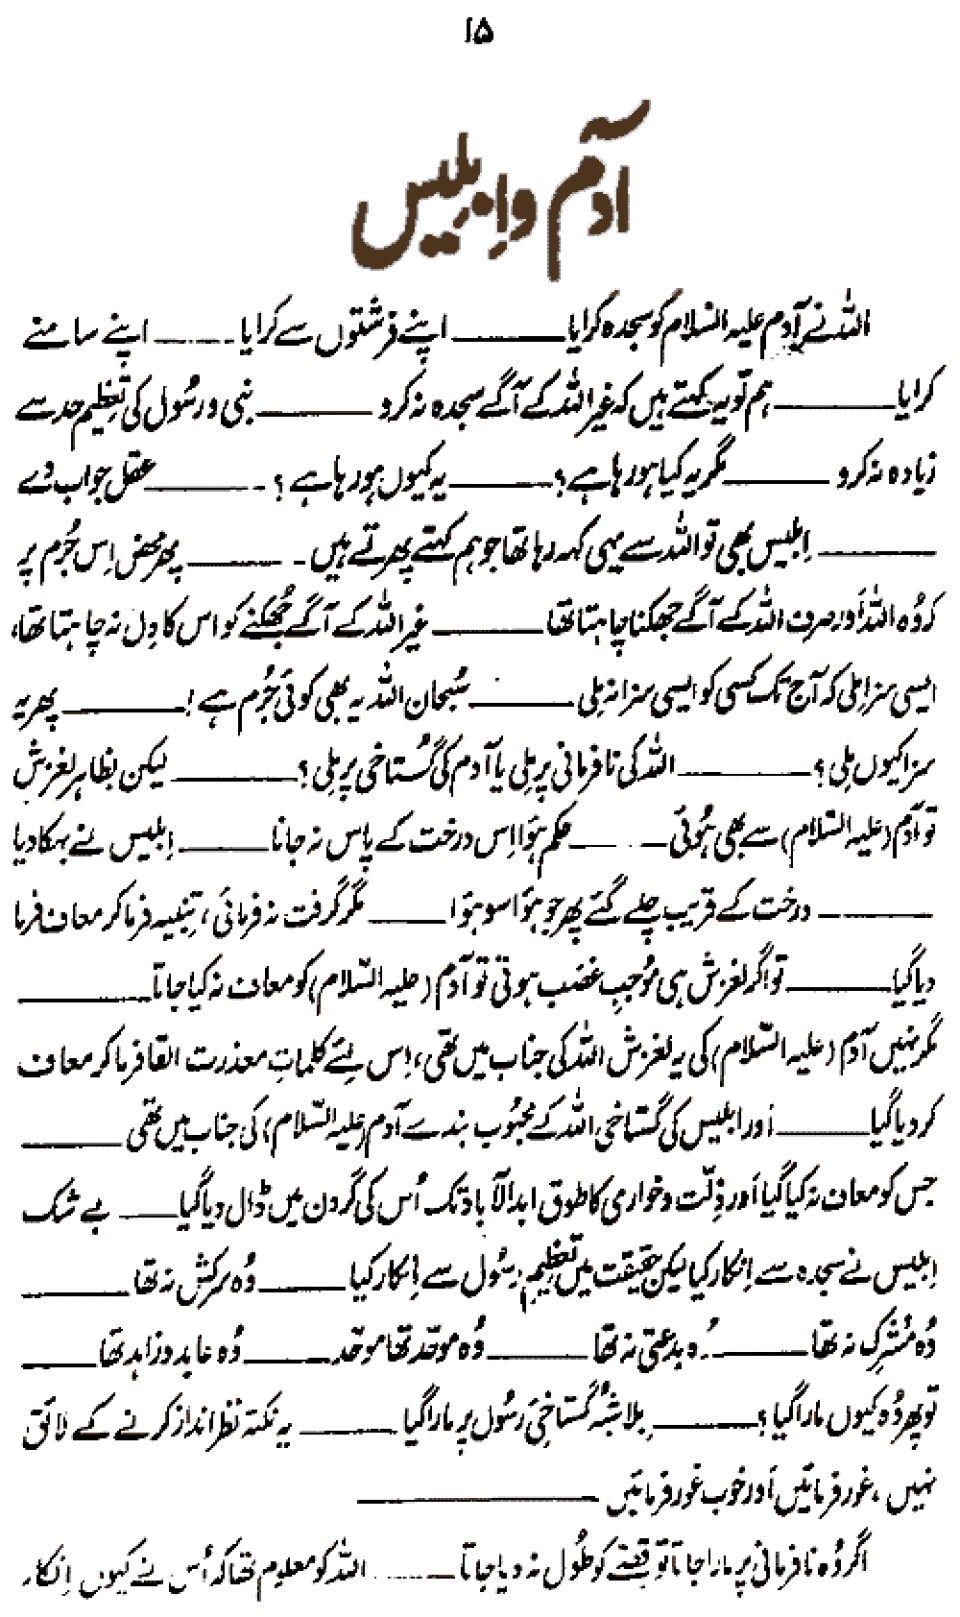 ۱۵
آدم و اِبلیس
اللہ نے آدم علیہ السّلام کو سجدہ کرایا ــــــ اپنے فرشتوں سے کرایا ــــــ اپنے سامنے
کرایا ــــــ ہم تو یہ کہتے ہیں کہ غیر اللہ کے آگے سجدہ نہ کرو ــــــ نبی و رسُول کی تعظیم حد سے
زیادہ نہ کرو ــــــ مگر یہ کیا ہو رہا ہے؟ ــــــ یہ کیوں ہو رہا ہے؟ ــــــ عقل جواب دے
ــــــ اِبلیس بھی تو اللہ سے یہی کہہ رہا تھا جو ہم کہتے پھرتے ہیں۔ ــــــ پھر محض اِس جُرم پر
کہ وُہ اللہ اَور صرف اللہ کے آگے جھکنا چاہتا تھا ــــــ غیر اللہ کے آگے جُھکنے کو اس کا دِل نہ چاہتا تھا،
ایسی سزا مِلی کہ آج تک کسی کو ایسی سزا نہ مِلی ــــــ سُبحان اللہ یہ بھی کوئی جُرم ہے! ــــــ پھر یہ
سزا کیوں مِلی؟ ــــــ اللہ کی نافرمانی پر مِلی یا آدم کی گُستاخی پر مِلی؟ ــــــ لیکن بظاہر لغزش
تو آدم (علیہ السّلام) سے بھی ہُوئی ــــــ حکم ہوَا اِس درخت کے پاس نہ جانا ــــــ اِبلیس نے بہکا دیا
ــــــ درخت کے قریب چلے گئے پھر جو ہوَا سو ہوَا ــــــ مگر گرفت نہ فرمائی، تنبیہ فرما کر معاف فرما
دیا گیا ــــــ تو اگر لغزش ہی مُوجبِ غضب ہوتی تو آدم (علیہ السّلام) کو معاف نہ کیا جاتا ــــــ
مگر نہیں آدم (علیہ السّلام) کی یہ لغزش اللہ کی جناب میں تھی، اِس لئے کلماتِ معذرت القا فرما کر معاف
کر دیا گیا ــــــ اَور ابلیس کی گستاخی اللہ کے محبُوب بندے آدم (علیہ السّلام) کی جناب میں تھی ــــــ
جس کو معاف نہ کیا گیا اَور ذِلّت و خواری کا طوق ابد الآباد تک اُس کی گردن میں ڈال دیا گیا ــــــ بے شک
اِبلیس نے سجدہ سے اِنکار کیا لیکن حقیقت میں تعظیمِ رسُول سے اِنکار کیا ــــــ وُہ سرکش نہ تھا ــــــ
وُہ مُشرک نہ تھا ــــــ وُہ بدعتی نہ تھا ــــــ وُہ موحّد تھا موحّد ــــــ وُہ عابد و زاہد تھا ــــــ
تو پھر وُہ کیوں مارا گیا؟ ــــــ بِلاشُبہ گستاخیٔ رسُول پر مارا گیا ــــــ یہ نکتہ نظر انداز کرنے کے لائق
نہیں، غور فرمائیں اَور خوب غور فرمائیں ــــــ
اگر وُہ نافرمانی پر مارا جاتا تو قصّے کو طُول نہ دیا جاتا ــــــ اللہ کو معلوم تھا کہ اُس نے کیوں اِنکار